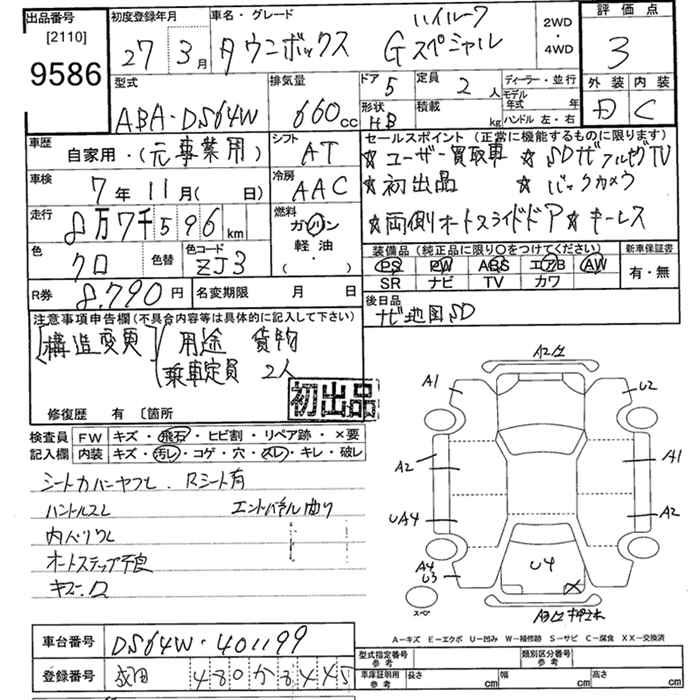 出品番号
[2110]
9586
初度登録年月
27年 3月
車名・グレード
タウンボックス ハイルーフ
Gスペシャル
2WD・4WD
評価点
3
外装 内装
D C
型式
ABA-DS64W
排気量
660cc
ドア 5
形状 HB
定員 2人
積載 kg
ディーラー・並行
モデル年式 年
ハンドル 左・右
車歴
自家用・(元事業用)
シフト
AT
車検
7年11月( 日)
冷房
AAC
走行
8万7千596km
燃料
ガソリン
軽油・
( ・ )
色
クロ
色替
色コード
ZJ3
R券
8,790円
名変期限 月 日
セールスポイント (正常に機能するものに限ります)
☆ユーザー買取車 ☆SDナビフルセグTV
☆初出品 ☆バックカメラ
☆両側オートスライドドア☆キーレス
装備品(純正品に限り〇をつけてください) 新車保証書
PS PW ABS エアB AW
SR ナビ TV カワ
有・無
後日品
ナビ地図SD
注意事項申告欄(不具合内容等は具体的に記入して下さい)
[構造変更] 用途 貨物
乗車定員 2人
初出品
修復歴 有 〔箇所
検査員記入欄
FW キズ・飛石・ヒビ割・リペア跡・×要
内装 キズ・汚レ・コゲ・穴・スレ・キレ・破レ
シートカバーヤブレ Rシート有
ハンドルスレ エンドパネル曲り
内ハリワレ
オートステップ不良
キズ・凹
A2凹
A1
U2
A2
A1
UA4
A2
A4
U3
U4
スペア
A-キズ E-エクボ U-凹み W-補修跡 S-サビ C-腐食 XX-交換済
車台番号
DS64W-401199
登録番号
成田 480か8445
型式指定番号 参考
類別区分番号 参考
車庫証明用 参考
長さ cm 幅 cm 高さ cm